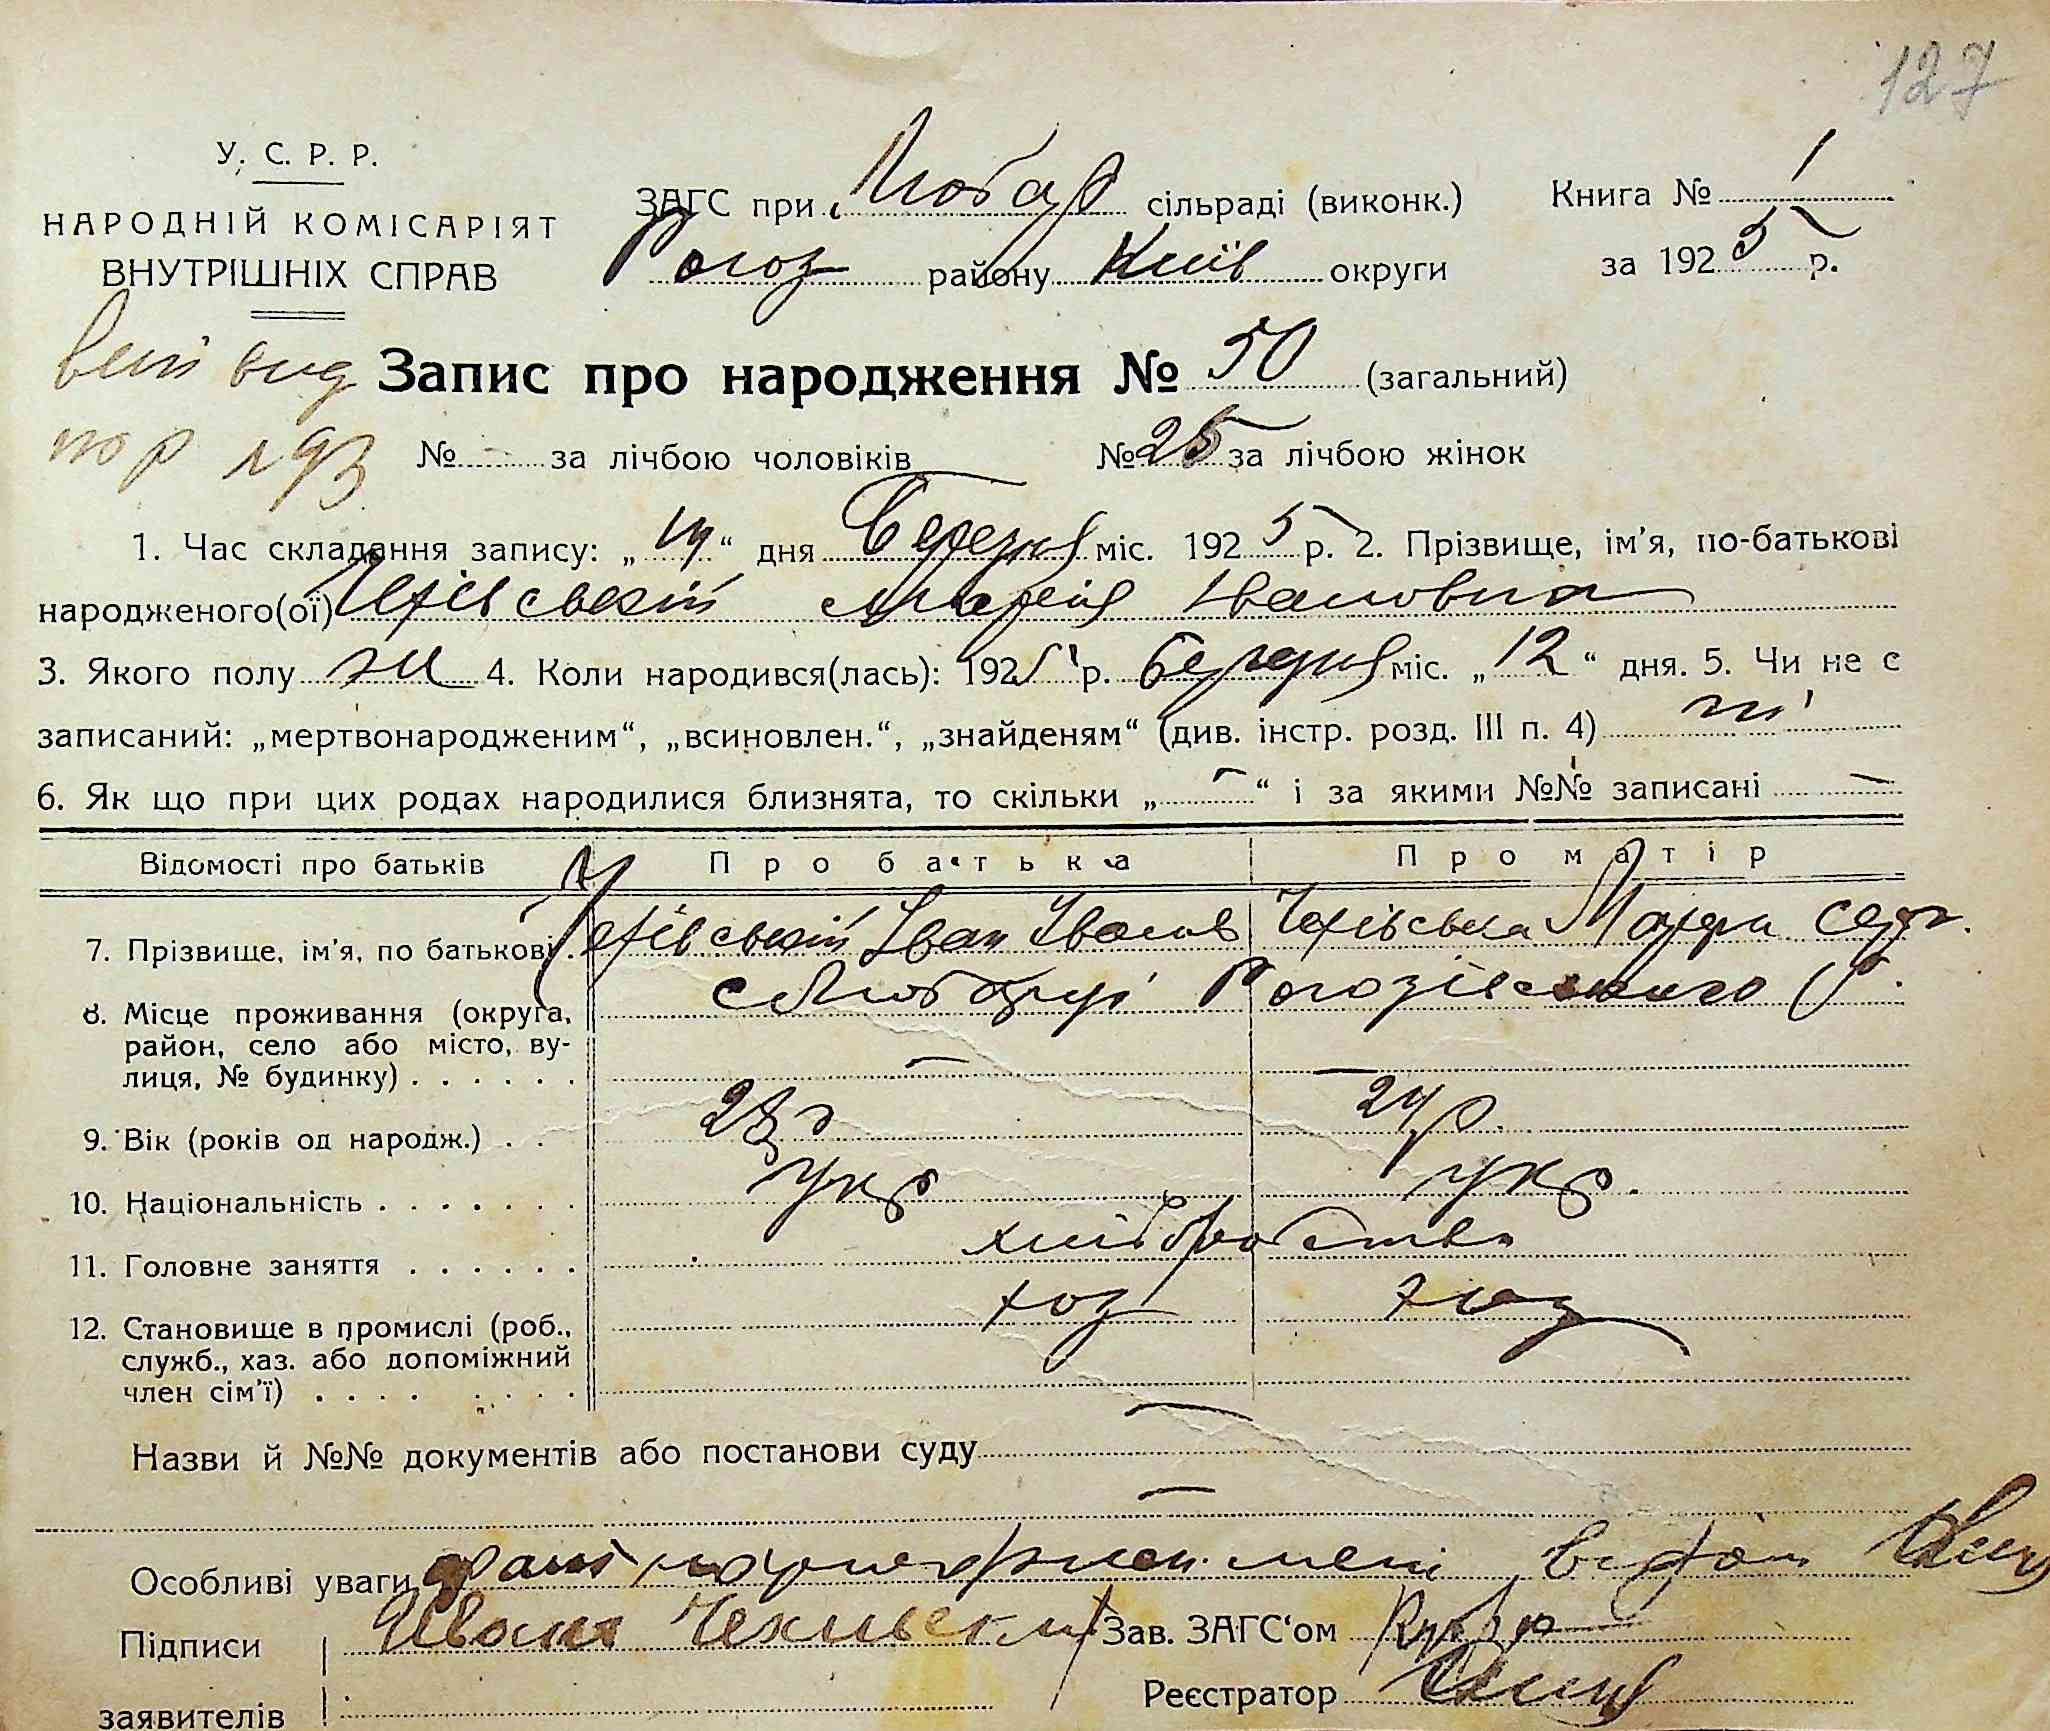 127
У. С. Р. Р.
НАРОДНІЙ КОМІСАРІЯТ
ВНУТРІШНІХ СПРАВ
ЗАГС при Любар сільраді (виконк.)
Рогоз району Київ округи
Книга № 1
за 1925 р.
Запис про народження № 50 (загальний)
№ - за лічбою чоловіків № 25 за лічбою жінок
1. Час складання запису: „ “ дня Березня міс. 1925 р. 2. Прізвище, ім'я, по-батькові
народженого(ої) Чехівській Марія Івановна
3. Якого полу ж 4. Коли народився(лась): 1925 р. березня міс. „12“ дня. 5. Чи не є
записаний: „мертвонародженим“, „всиновлен.“, „знайденям“ (див. інстр. розд. III п. 4) ні
6. Як що при цих родах народилися близнята, то скільки „ - “ і за якими №№ записані -
Відомості про батьків Про батька Про матір
7. Прізвище, ім'я, по батькові. Чехівській Іван Іванов Чехівська Марфа
8. Місце проживання (округа, район, село або місто, вулиця, № будинку) . . . . . . с Любарці Рогозівського р.
9. Вік (років од народж.) . . 24 р.
10. Національність . . . . . . . укр укр.
11. Головне заняття . . . . . . хліборобство
12. Становище в промислі (роб., служб., хаз. або допоміжний член сім'ї) . . . . . . . . хоз
Назви й №№ документів або постанови суду -
-
Особливі уваги
Підписи заявителів Иван Чехивский
Зав. ЗАГС'ом
Реєстратор